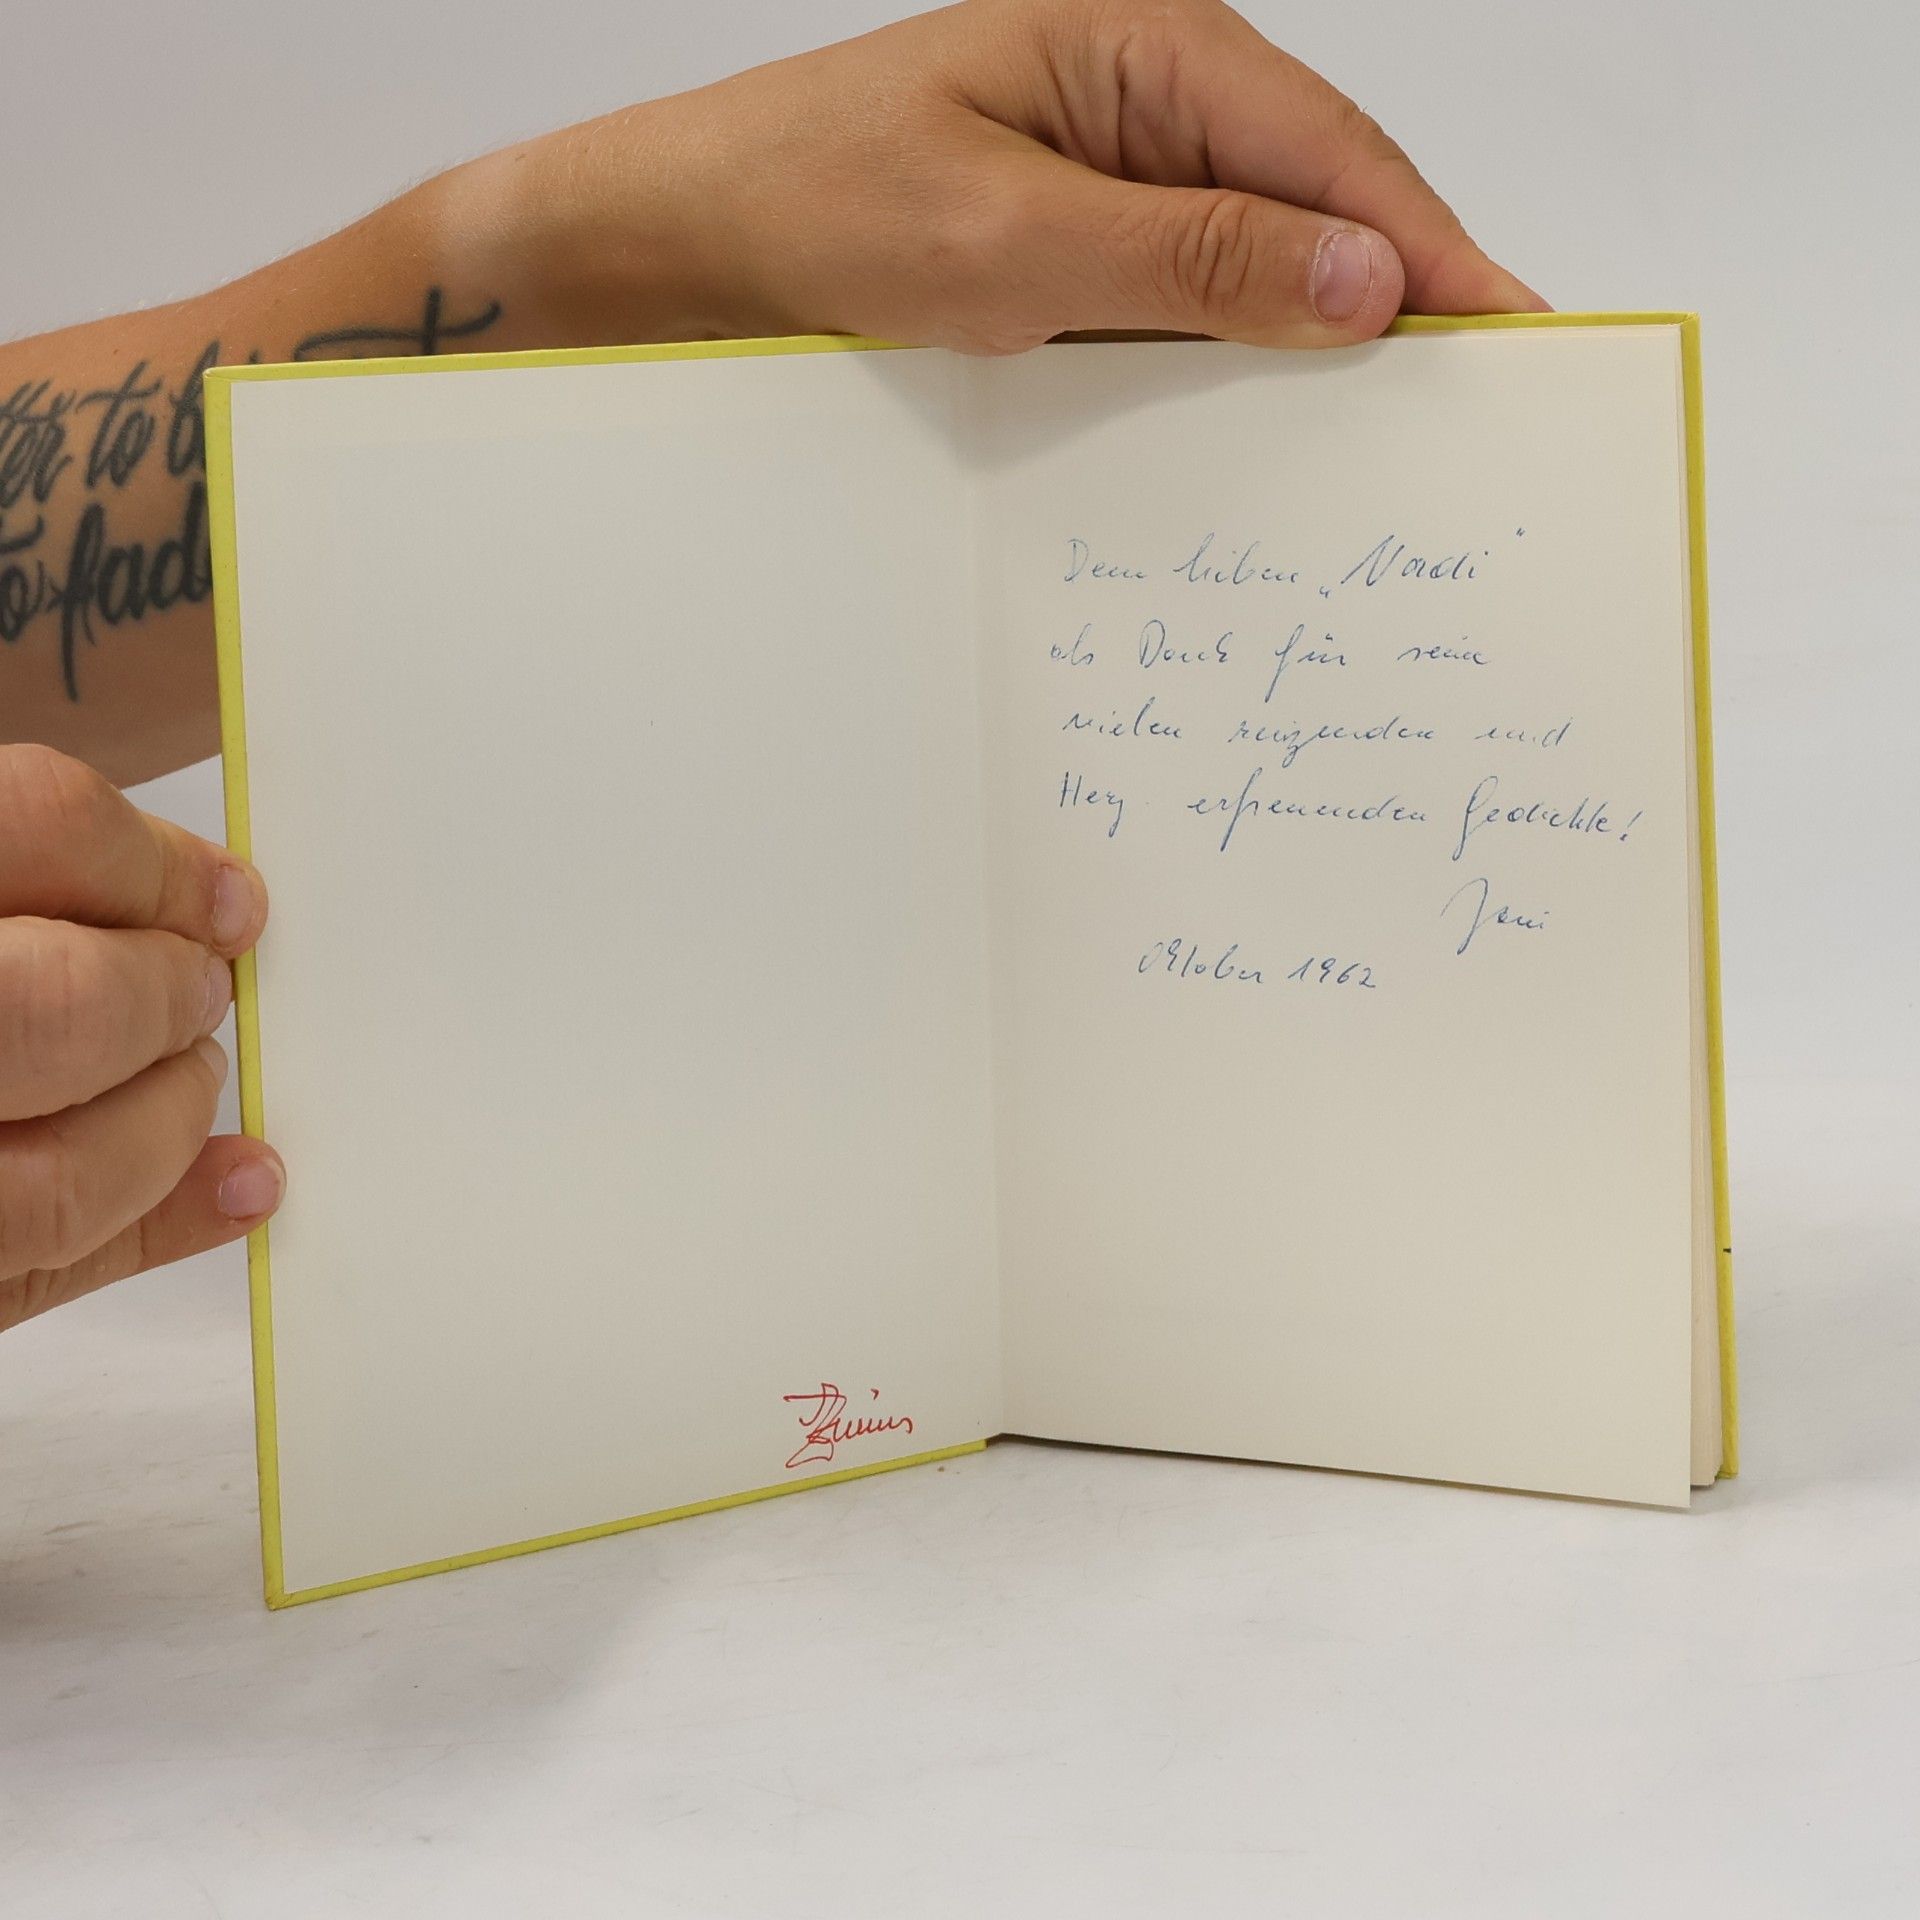 tter to b
to fad
Dem lieben „Nadi"
als Dank für seine
vielen reizenden und
Herz erfreuenden Gedichte!
Jani
Oktober 1962